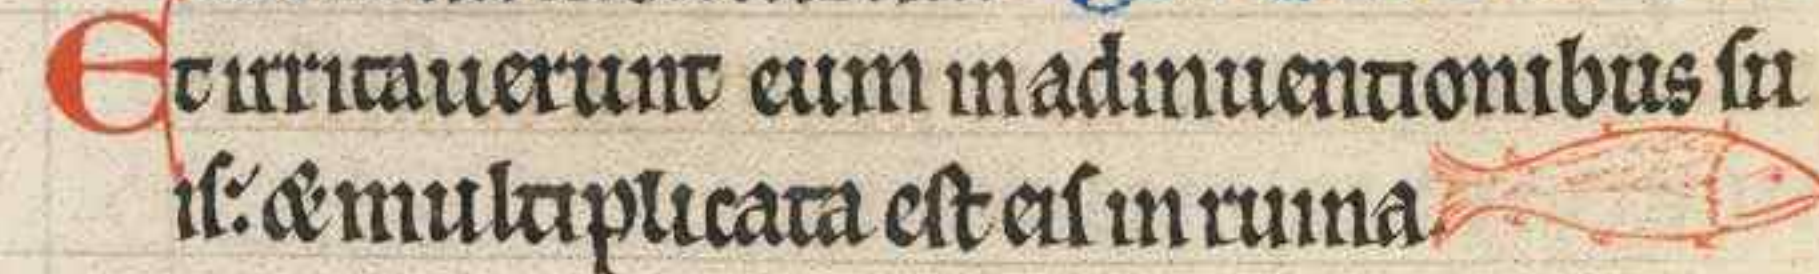 Et irritauerunt eum in adinuentionibus su
iſ: & multiplicata eſt eiſ in ruina.